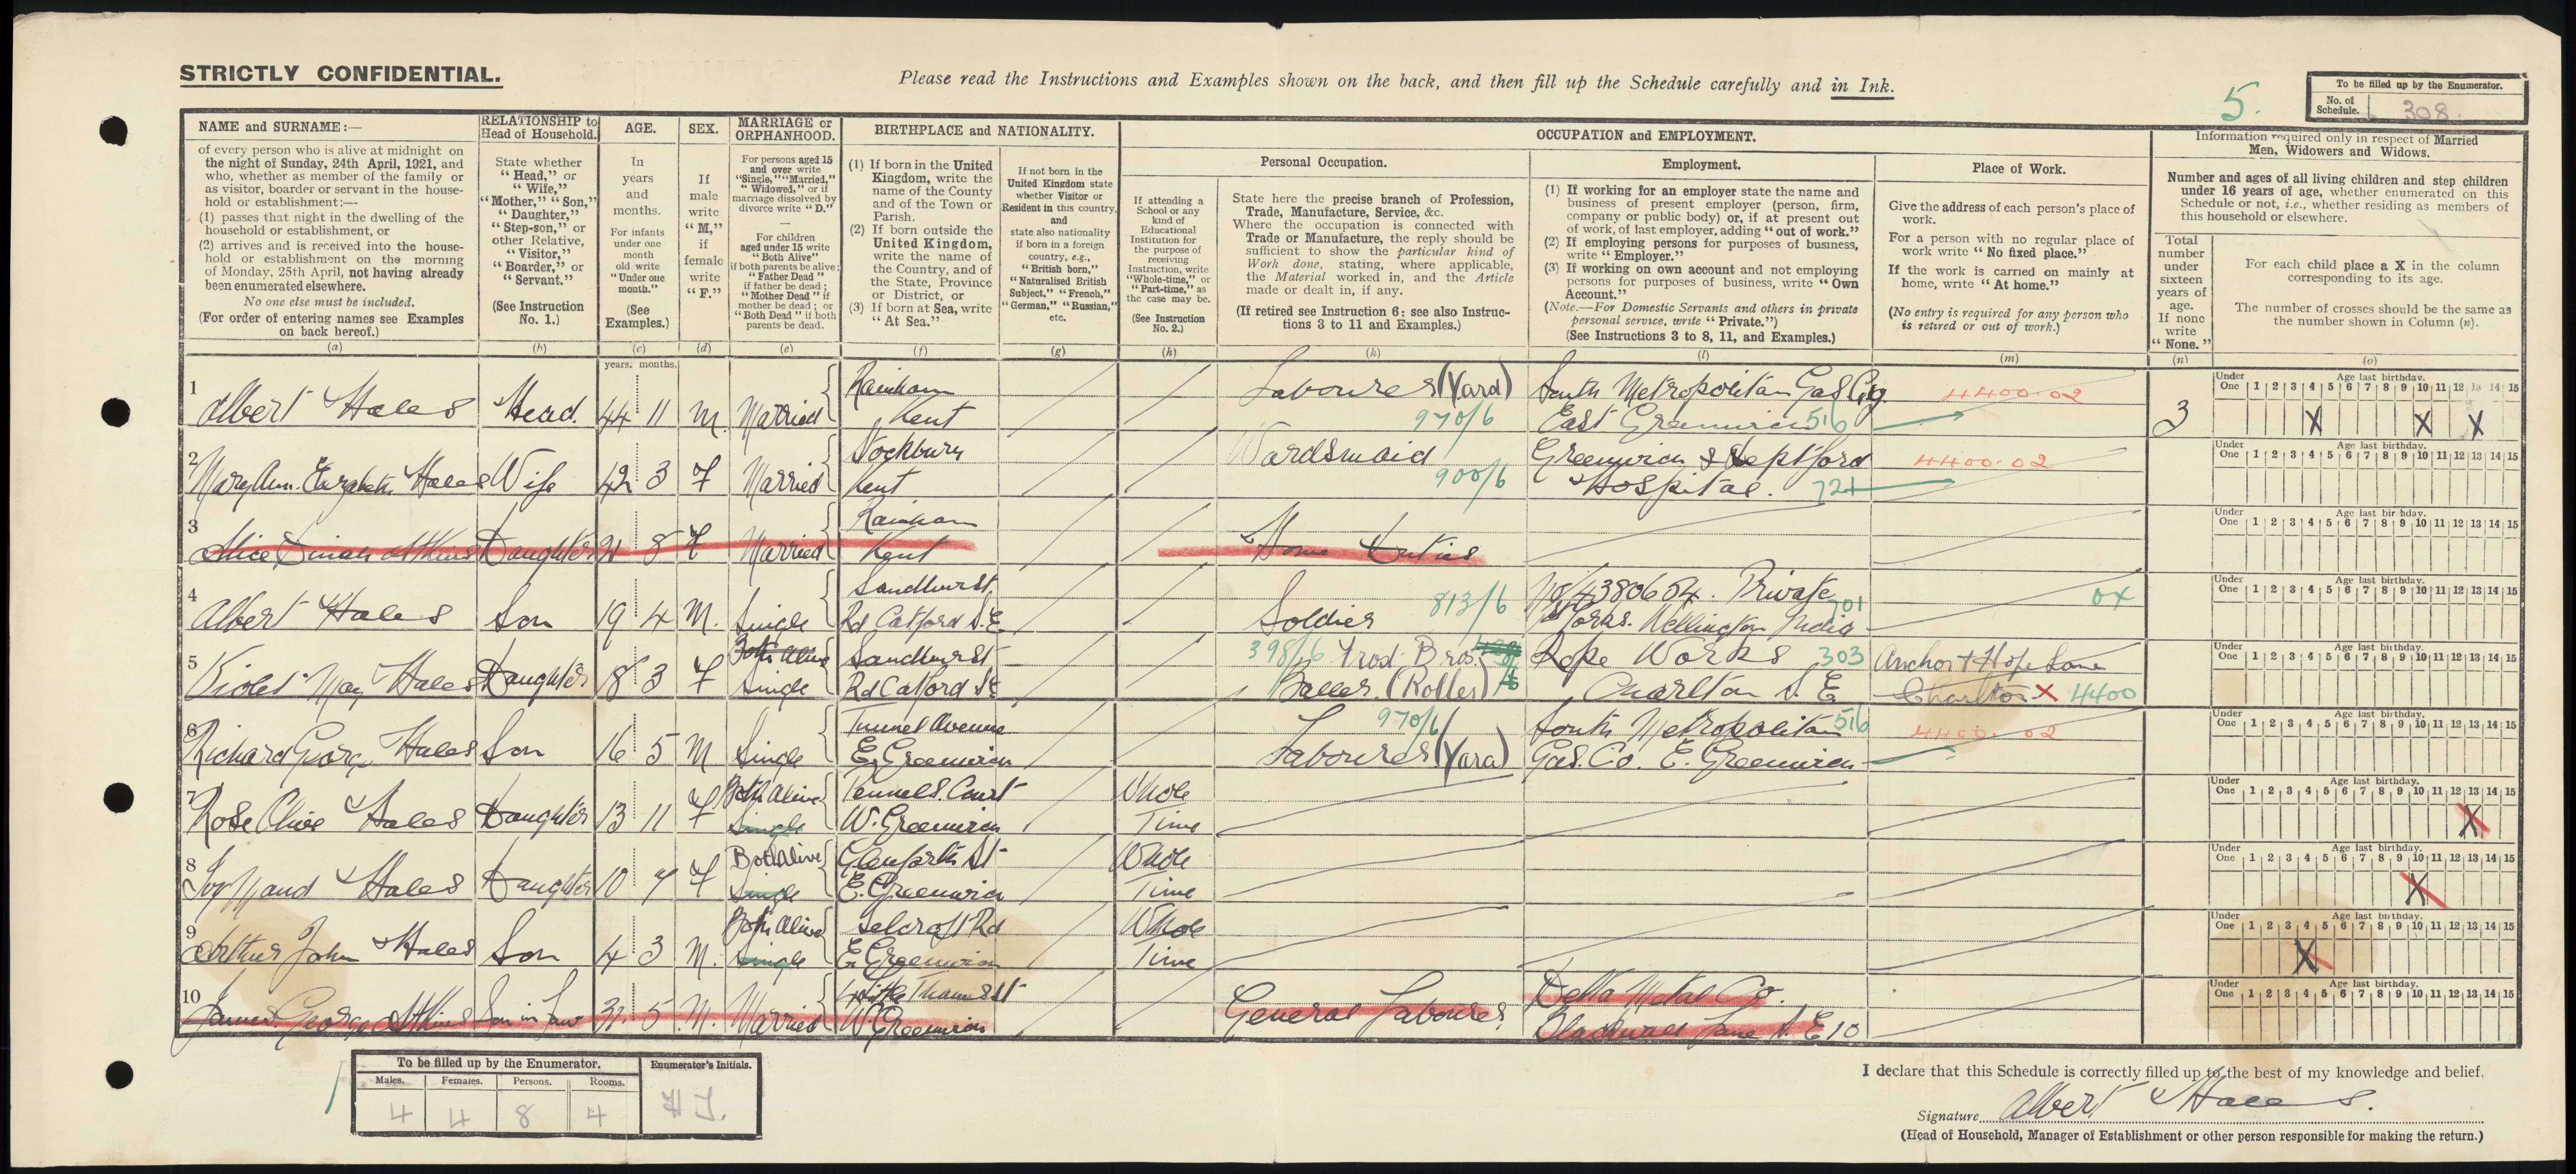 STRICTLY CONFIDENTIAL.
Please read the Instructions and Examples shown on the back, and then fill up the Schedule carefully and in Ink.
5.
To be filled up by the Enumerator.
No. of Schedule. 308.
NAME and SURNAME:—
of every person who is alive at midnight on
the night of Sunday, 24th April, 1921, and
who, whether as member of the family or
as visitor, boarder or servant in the house-
hold or establishment:—
(1) passes that night in the dwelling of the
household or establishment, or
(2) arrives and is received into the house-
hold or establishment on the morning
of Monday, 25th April, not having already
been enumerated elsewhere.
No one else must be included.
(For order of entering names see Examples
on back hereof.)
(a)
RELATIONSHIP to
Head of Household.
State whether
"Head," or
"Wife,"
"Mother," "Son,"
"Daughter,"
"Step-son," or
other Relative,
"Visitor,"
"Boarder," or
"Servant."
(See Instruction
No. 1.)
(b)
AGE.
In
years
and
months.
For infants
under one
month
old write
"Under one
month."
(See
Examples.)
(c)
years. months.
SEX.
If
male
write
"M,"
if
female
write
"F."
(d)
MARRIAGE or
ORPHANHOOD.
For persons aged 15
and over write
"Single," "Married,"
"Widowed," or if
marriage dissolved by
divorce write "D."
—
For children
aged under 15 write
"Both Alive"
if both parents be alive;
"Father Dead"
if father be dead;
"Mother Dead" if
mother be dead; or
"Both Dead" if both
parents be dead.
(e)
BIRTHPLACE and NATIONALITY.
(1) If born in the United
Kingdom, write the
name of the County
and of the Town or
Parish.
(2) If born outside the
United Kingdom,
write the name of
the Country, and of
the State, Province
or District, or
(3) If born at Sea, write
"At Sea."
(f)
If not born in the
United Kingdom state
whether Visitor or
Resident in this country,
and
state also nationality
if born in a foreign
country, e.g.,
"British born,"
"Naturalised British
Subject," "French,"
"German," "Russian,"
etc.
(g)
OCCUPATION and EMPLOYMENT.
If attending a
School or any
kind of
Educational
Institution for
the purpose of
receiving
Instruction, write
"Whole-time," or
"Part-time," as
the case may be.
(See Instruction
No. 2.)
(h)
Personal Occupation.
State here the precise branch of Profession,
Trade, Manufacture, Service, &c.
Where the occupation is connected with
Trade or Manufacture, the reply should be
sufficient to show the particular kind of
Work done, stating, where applicable,
the Material worked in, and the Article
made or dealt in, if any.
(If retired see Instruction 6; see also Instruc-
tions 3 to 11 and Examples.)
(k)
Employment.
(1) If working for an employer state the name and
business of present employer (person, firm,
company or public body) or, if at present out
of work, of last employer, adding "out of work."
(2) If employing persons for purposes of business,
write "Employer."
(3) If working on own account and not employing
persons for purposes of business, write "Own
Account."
(Note.—For Domestic Servants and others in private
personal service, write "Private.")
(See Instructions 3 to 8, 11, and Examples.)
(l)
Place of Work.
Give the address of each person's place of
work.
For a person with no regular place of
work write "No fixed place."
If the work is carried on mainly at
home, write "At home."
(No entry is required for any person who
is retired or out of work.)
(m)
Information required only in respect of Married
Men, Widowers and Widows.
Number and ages of all living children and step children
under 16 years of age, whether enumerated on this
Schedule or not, i.e., whether residing as members of
this household or elsewhere.
Total
number
under
sixteen
years of
age.
If none
write
"None."
(n)
For each child place a X in the column
corresponding to its age.
The number of crosses should be the same as
the number shown in Column (n).
(o)
1 Albert Hales Head. 44 11 M. Married Rainham Kent Labourer (Yard) 970/6 South Metropolitan Gas Coy. East Greenwich 516 4400.02 3 X X X
Under One Age last birthday. 1 2 3 4 5 6 7 8 9 10 11 12 13 14 15
2 Mary Ann Elizabeth Hales Wife 42 3 F Married Stockbury Kent Wardsmaid 900/6 Greenwich & Deptford Hospital. 721 4400.02
Under One Age last birthday. 1 2 3 4 5 6 7 8 9 10 11 12 13 14 15
3 Alice Dinah Atkins Daughter 21 8 F Married Rainham Kent Home Duties
Under One Age last birthday. 1 2 3 4 5 6 7 8 9 10 11 12 13 14 15
4 Albert Hales Son 19 4 M. Single Sandhurst Rd Catford S.E. Soldier 813/6 No/4380604. Private Yorks. Wellington India 701 OX
Under One Age last birthday. 1 2 3 4 5 6 7 8 9 10 11 12 13 14 15
5 Violet May Hales Daughter 18 3 F Both Alive Single Sandhurst Rd Catford SE 398/6 Frost Bros. Baller. (Roller) Rope Works 303 Charlton S.E Anchor & Hope Lane Charlton X 4400
Under One Age last birthday. 1 2 3 4 5 6 7 8 9 10 11 12 13 14 15
6 Richard George Hales Son 16 5 M Single Tunnel Avenue E. Greenwich 970/6 Labourer (Yard) South Metropolitan 516 Gas. Co. E. Greenwich 4400.02
Under One Age last birthday. 1 2 3 4 5 6 7 8 9 10 11 12 13 14 15
7 Rose Olive Hales Daughter 13 11 F Both Alive Single Pennels. Court W. Greenwich Whole Time X
Under One Age last birthday. 1 2 3 4 5 6 7 8 9 10 11 12 13 14 15
8 Ivy Maud Hales Daughter 10 7 F Both Alive Single Glenforth St E. Greenwich Whole Time X
Under One Age last birthday. 1 2 3 4 5 6 7 8 9 10 11 12 13 14 15
9 Arthur John Hales Son 4 3 M. Both Alive Single Selcroft Rd E. Greenwich Whole Time X
Under One Age last birthday. 1 2 3 4 5 6 7 8 9 10 11 12 13 14 15
10 James George Atkins Son in Law 5 M. Married Little Thames St W Greenwich General Labourer. Delta Metal Co. Blackwall Lane S.E 10
Under One Age last birthday. 1 2 3 4 5 6 7 8 9 10 11 12 13 14 15
To be filled up by the Enumerator.
Males. Females. Persons. Rooms.
4 4 8 4
Enumerator's Initials.
I declare that this Schedule is correctly filled up to the best of my knowledge and belief,
Signature Albert Hales.
(Head of Household, Manager of Establishment or other person responsible for making the return.)